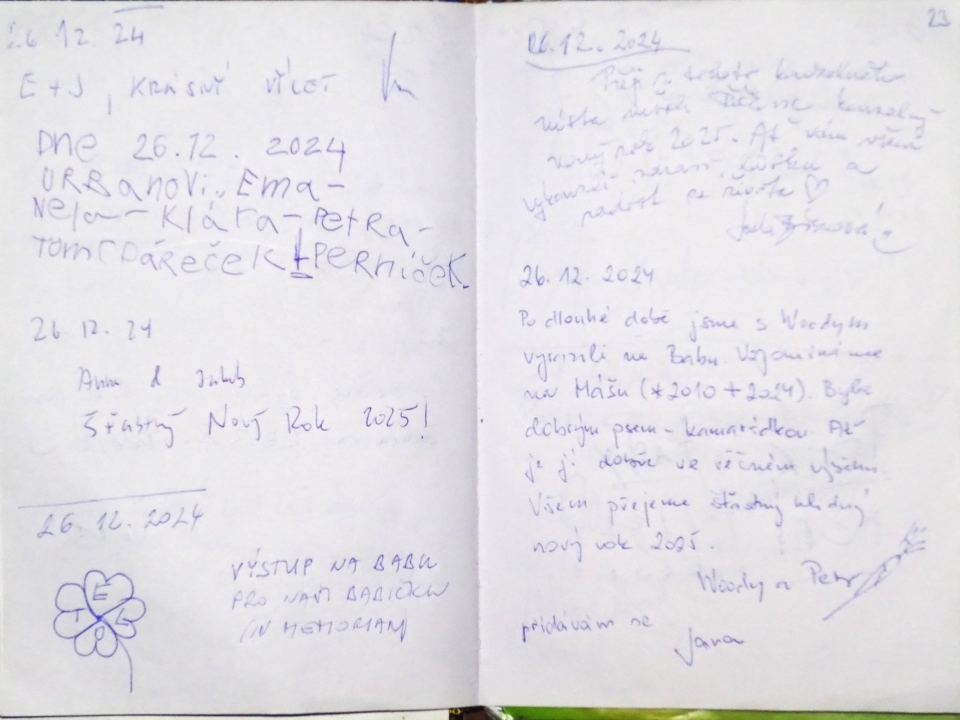 26 12 24
E + J, KRÁSNÝ VÝLET
Dne 26.12. 2024
URBanovi, Ema-
Nela-Klára-Petra-
Tom Dáreček + Perníček
26 12. 24
Anna & Jakub
Šťastný Nový Rok 2025!
26. 12. 2024
E
T
VÝSTUP NA BABU
PRO NAŠI BABIČKU
IN MEMORIAM
23
26.12. 2024
Přeji z tohoto kouzelného
místa kouzelný
nový rok 2025. Ať vám všem
zdraví, lásku a
radost ze života ♡
26. 12. 2024
Po dlouhé době jsme s Woodym
vyrazili na Babu. Vzpomínáme
na Mášu (*2010 +2024). Byla
dobrým psem - kamarádkou. Ať
je jí dobře ve věčném
Všem přejeme šťastný klidný
nový rok 2025.
Woody a Petr
přidávám se
Jana